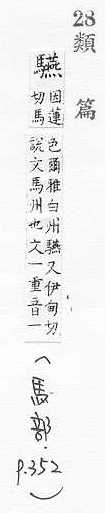 28類篇
驠 因蓮切馬色爾雅白州驠又伊甸切說文馬州也文一重音一
(馬部. p.352)